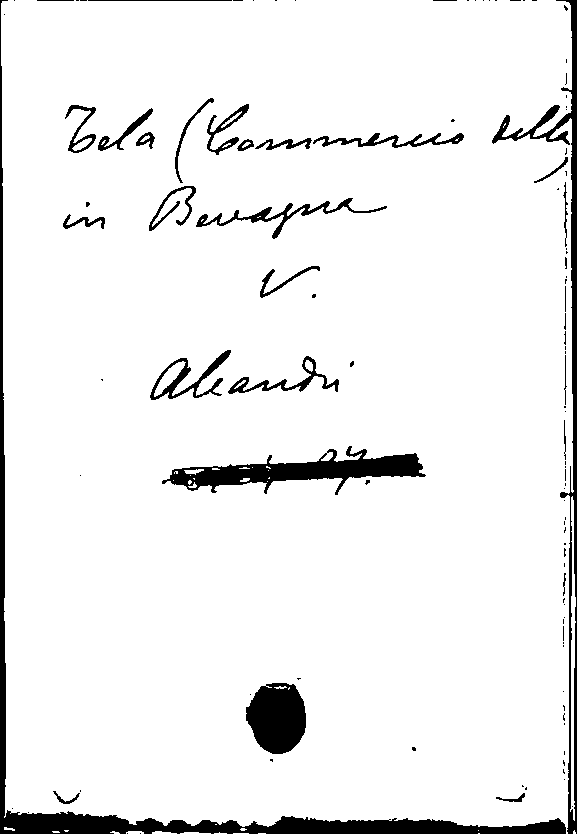 Tela (Commercio della)
in Bevagna
V.
Aleandri